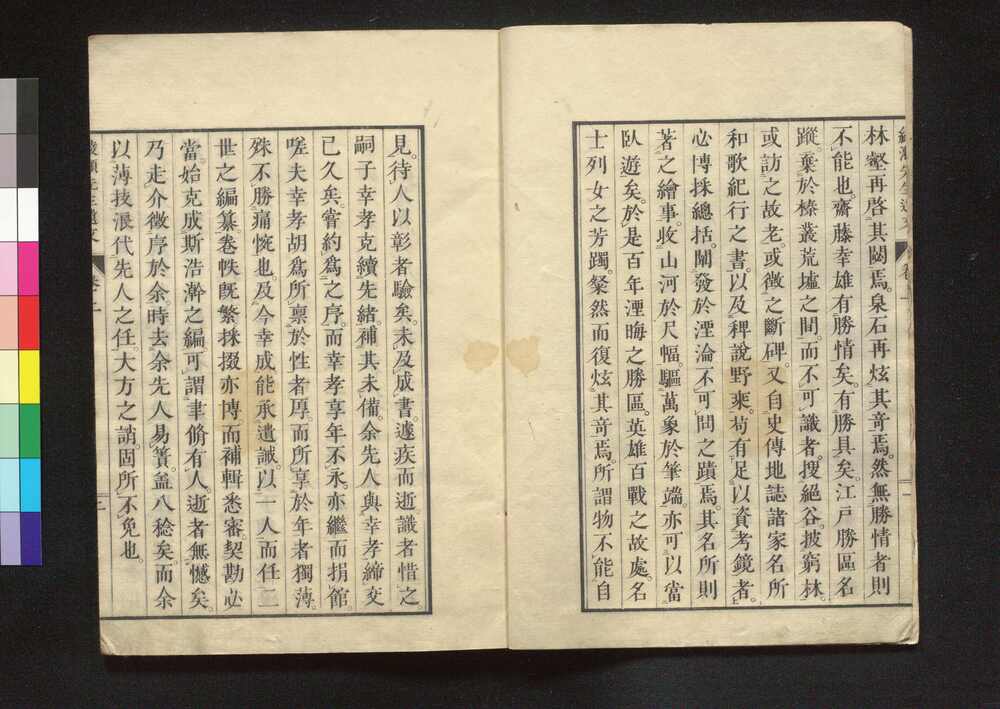 林壑再啓其閟焉。泉石再炫其奇焉。然無勝情者則
不能也。齋藤幸雄有勝情矣。有勝具矣。江戸勝區名
蹤。棄於榛叢荒墟之間。而不可識者。搜絕谷。披窮林。
或訪之故老。或徵之斷碑。又自史傳地誌諸家名所
和歌紀行之書。以及稗說野乘。苟有足以資考鏡者。
必博採總括。闡發於湮淪不可問之蹟焉。其名所則
著之繪事。收山河於尺幅。驅萬象於筆端。亦可以當
臥遊矣。於是百年湮晦之勝區。英雄百戰之故處。名
士列女之芳躅。粲然而復炫其奇焉。所謂物不能自
見。待人以彰者驗矣。未及成書遽疾而逝識者惜之
嗣子幸孝克續先緒。補其未備。余先人與幸孝締交
已久矣。嘗約爲之序。而幸孝享年不永。亦繼而捐館。
嗟夫幸孝胡爲所稟於性者厚。而所享於年者獨薄
殊不勝痛惋也。及今幸成能承遺誡。以一人而任二
世之編纂。卷帙旣繁採掇亦博。而補輯悉審。契勘必
當。始克成斯浩瀚之編。可謂聿脩有人。逝者無憾矣。
乃走介徵序於余。時去余先人易簀。葢八稔矣。而余
以薄技謬代先人之任。大方之誚。固所不免也。